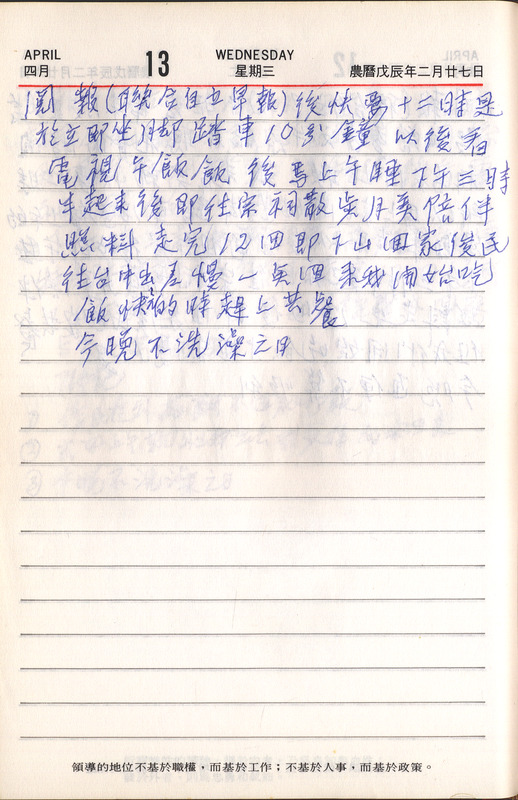 APRIL
四月
13
WEDNESDAY
星期三
農曆戊辰年二月廿七日
閱報(聯合自立早報)後快要十二時是
於立即坐腳踏車10分鐘以後看
電視午飯飯後馬上午睡下午三時
半起來後即往宗祠散步月英陪伴
照料走完12回即下山回家俊民
往台中出差慢一點回來我開始吃
飯快的時趕上共餐
今晚不洗澡之日
領導的地位不基於職權,而基於工作;不基於人事,而基於政策。